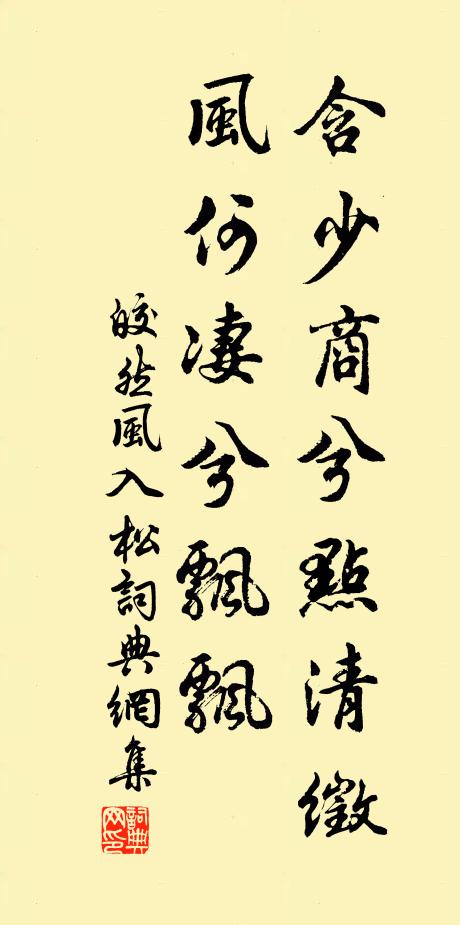 含少商兮點清徵
風何凄兮飄飄
皎然風入松詞典網集
詞典网印